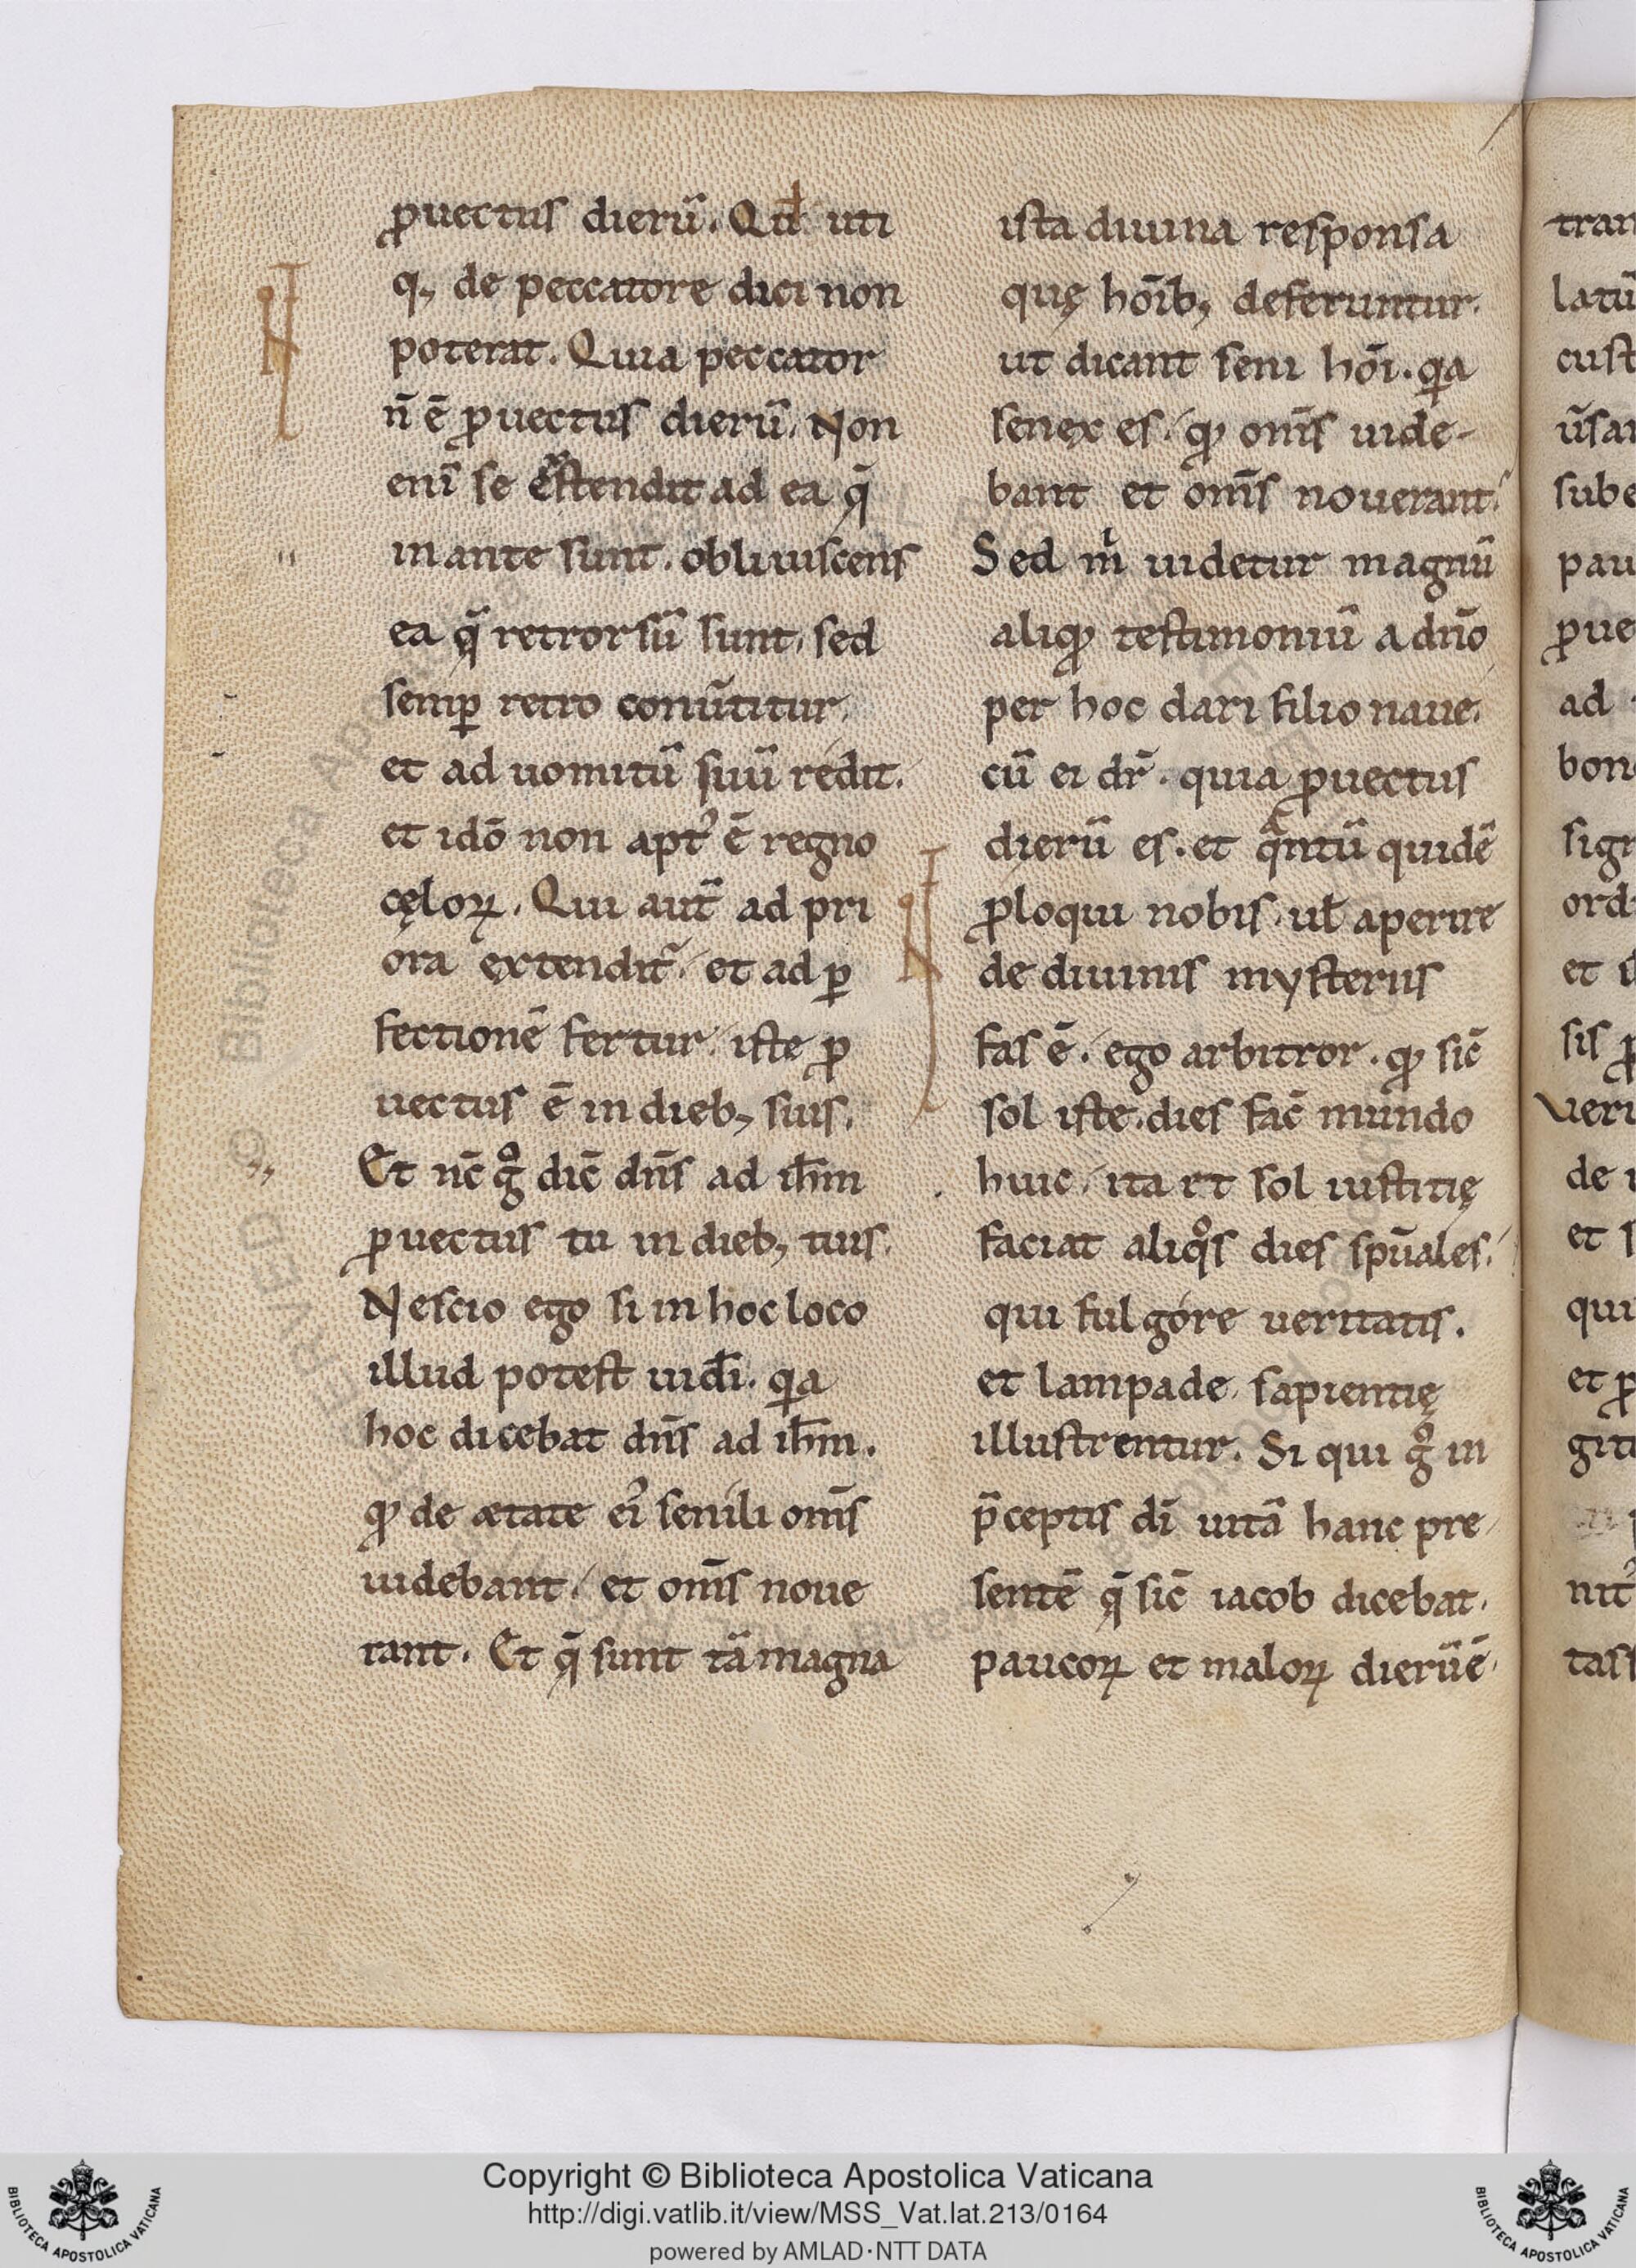 ꝓuectus dierū. Qd̄ uti
q, de peccatore dici non
poterat. Quia peccator
n̄ ē ꝓuectus dierū. Non
enī se extendit ad ea q̄
in ante sunt. obliuiscens
ea q̄ retrorsū sunt, sed
semꝑ retro conūtitur,
et ad uomitū suū redit.
et idō non apt᾽ ē regno
cęloꝝ. Qui aut̄ ad pri
ora extendit᷑, et ad ꝑ
fectionē fertur, iste ꝓ
uectus ē in dieb, suis.
Et nc̄ gͦ dic̄ dn̄s ad ih̄m
ꝓuectus tu in dieb, tuis.
Nescio ego si in hoc loco
illud potest uidr̄i. qia
hoc dicebat dn̄s ad ih̄m.
qꝫ de ætate ei᾽ senili om̄s
uidebant, et om̄s noue
rant. Et q̄ sunt tā magna
ista diuina responsa
quę hōib, deferuntur.
ut dicant seni hōi. qia
senex es, qꝫ om̄s uide-
bant et om̄s nouerant.
Sed mⁱ uidetur magnū
aliqꝫ testimoniū a dn̄o
per hoc dari filio naue,
cū ei dr̄. quia ꝓuectus
dierū es. et qͣntū quidē
ꝓloqui nobis, ul̄ aperire
de diuinis mysteriis
fas ē, ego arbitror. qꝫ sic̄
sol iste, dies fac̄ mundo
huic, ita et sol iustitię
faciat aliqͦs dies spūales,
qui fulgore ueritatis.
et lampade sapientię
illustrentur. Si qui gͦ in
p̄ceptis dī uitā hanc pre
sentē q̄ sic̄ iacob dicebat,
paucoꝝ et maloꝝ dierū ē
tran
latū
cust
ūsa
sube
pau
ꝓue
ad
bon
sign
ord
et
sis ꝓ
ueri
de
et s
qui
et ꝓ
git
nit᾽
tass
Copyright © Biblioteca Apostolica Vaticana
http://digi.vatlib.it/view/MSS_Vat.lat.213/0164
powered by AMLAD·NTT DATA
BIBLIOTECA APOSTOLICA VATICANA
BIBLIOTECA APOSTOLICA VATICANA